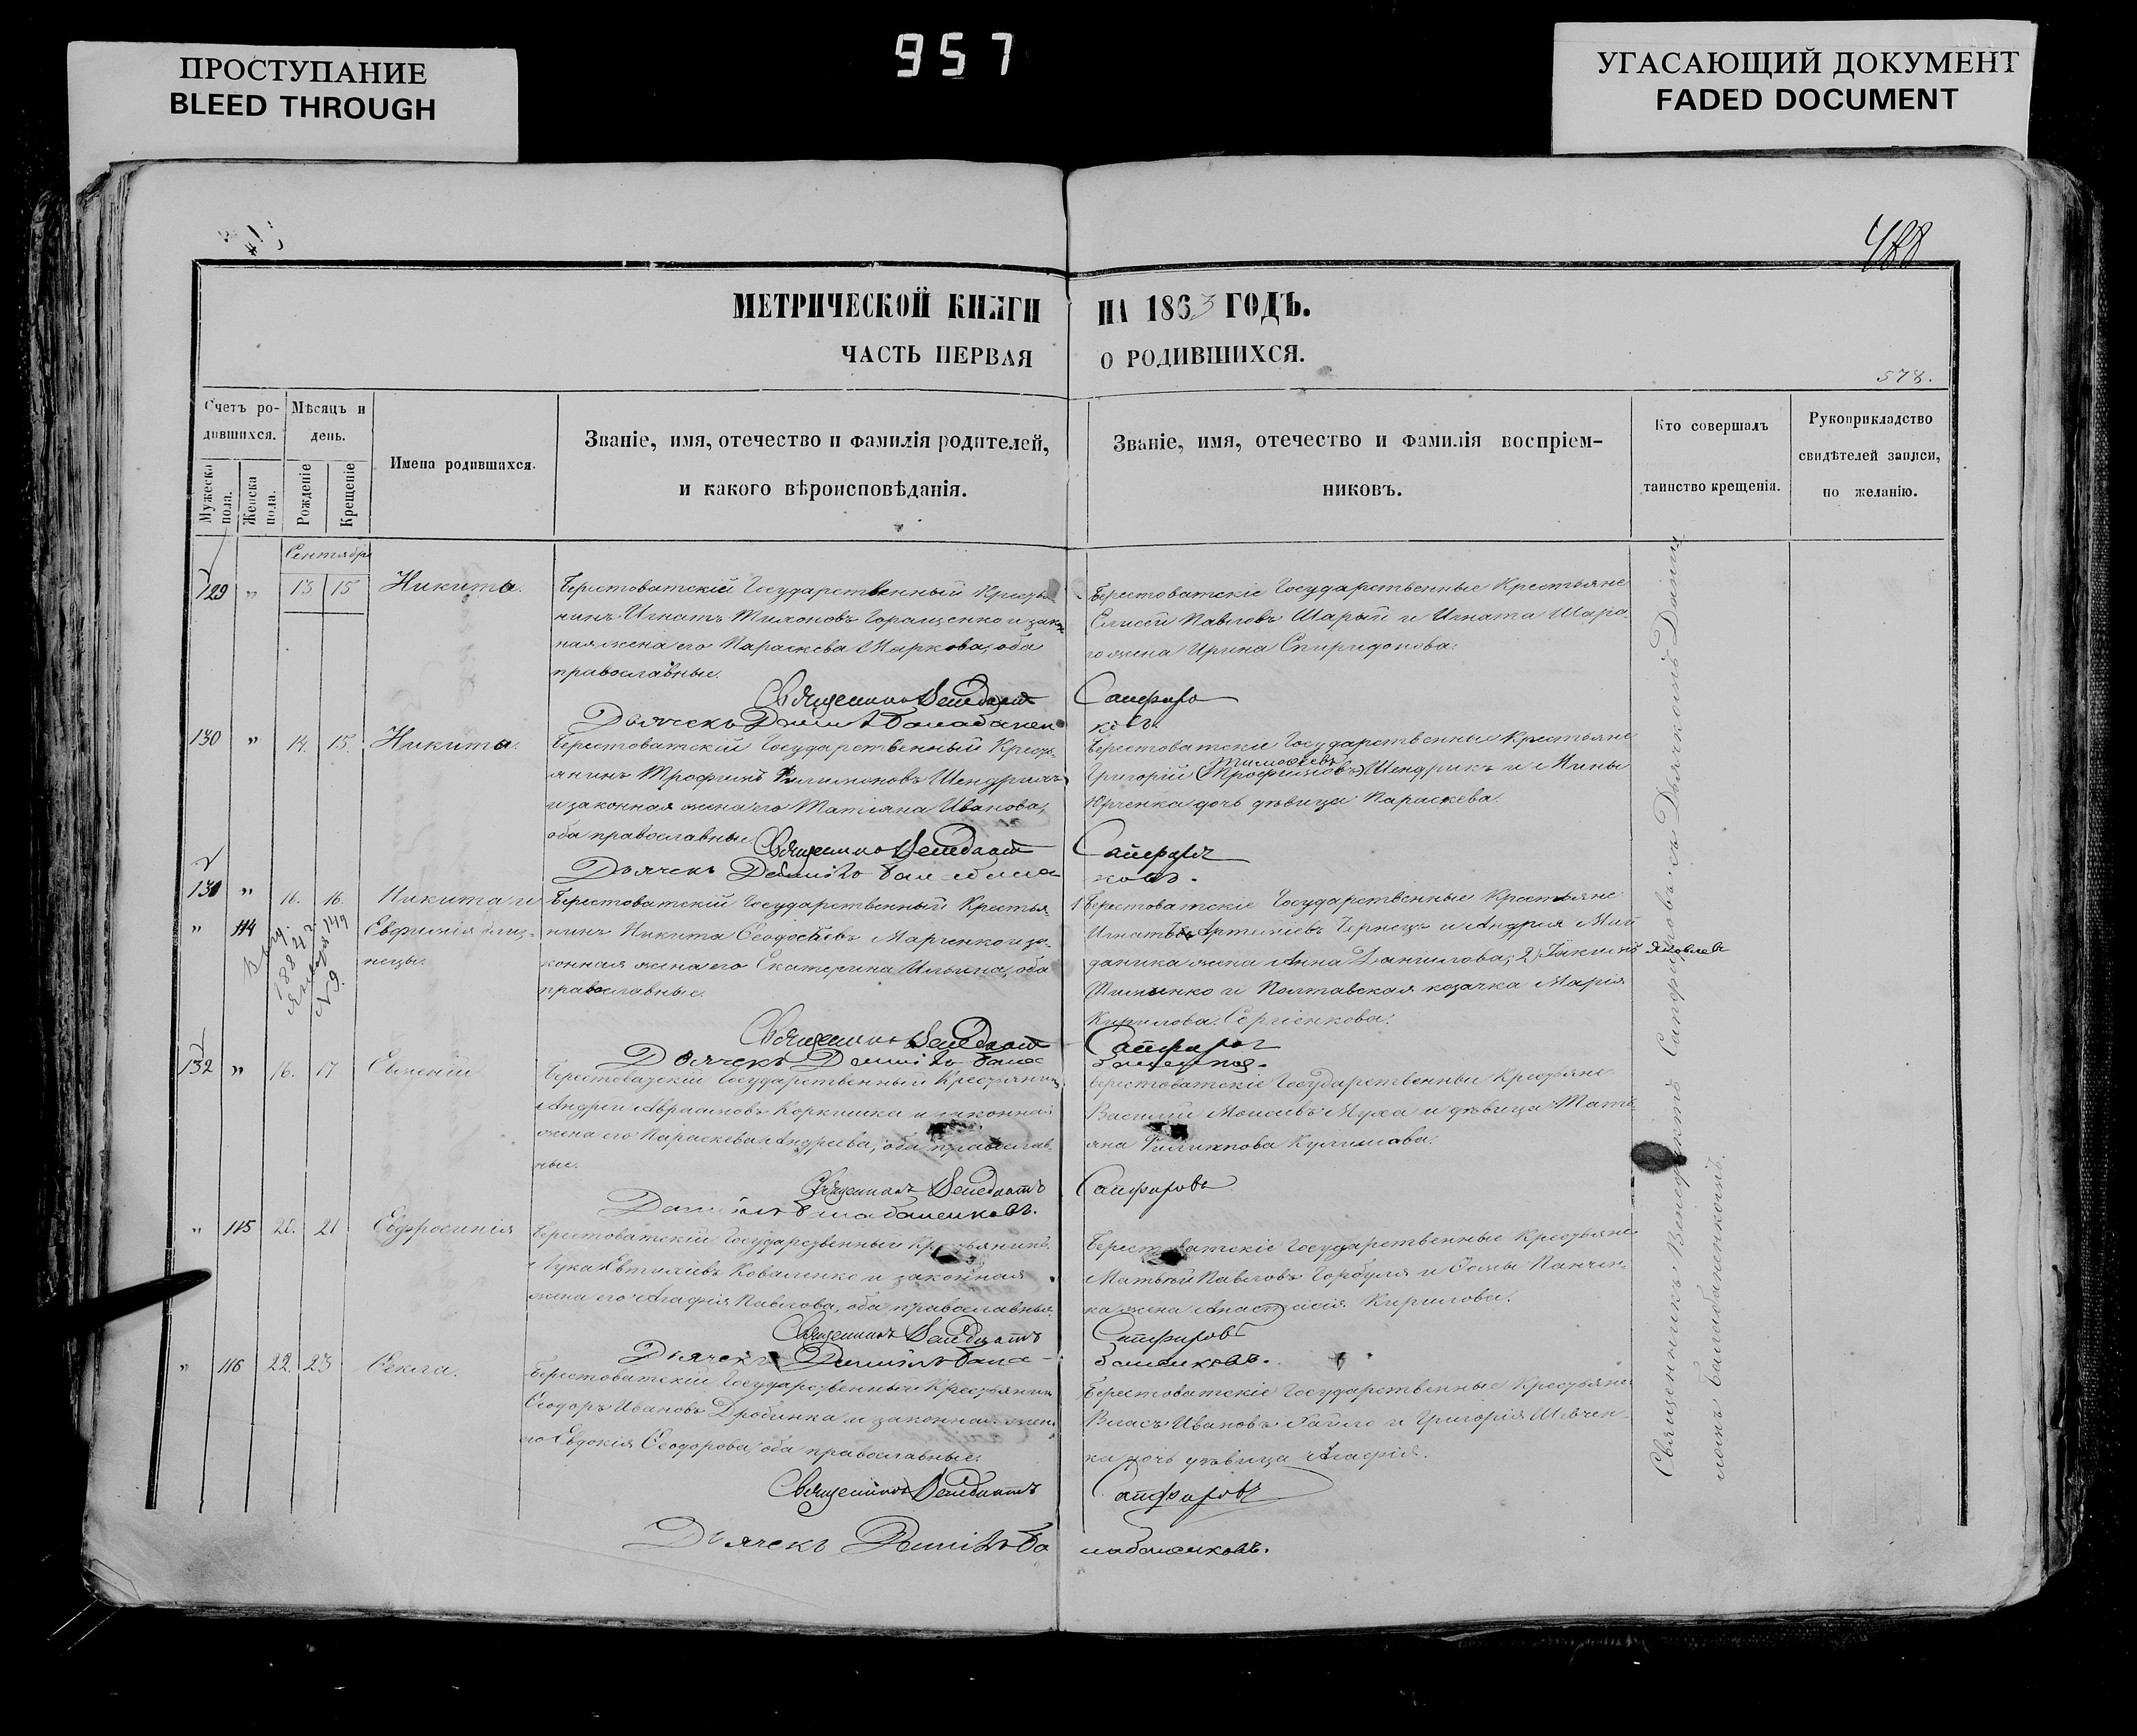 957
ПРОСТУПАНИЕ
BLEED THROUGH
УГАСАЮЩИЙ ДОКУМЕНТ
FADED DOCUMENT
488
МЕТРИЧЕСКОЙ КНИГИ НА 1863 ГОДЪ.
ЧАСТЬ ПЕРВАЯ О РОДИВШИХСЯ.
578.
Счетъ родившихся.
Мужеска пола.
Женска пола.
Мѣсяцъ и день.
Рожденіе
Крещеніе
Имена родившихся.
Званіе, имя, отечество и фамилія родителей,
и какого вѣроисповѣданія.
Званіе, имя, отечество и фамилія воспріем-
никовъ.
Кто совершалъ
таинство крещенія.
Рукоприкладство
свидѣтелей записи,
по желанію.
Сентября
129 " 13 15 Никита.
Берестоватскій Государственный Кресть
нинъ Игнатъ Тимоновъ Горащенко и зако
ная жена его Параскева Маркова, оба
православные.
Берестоватскіе Государственные Крестьяне
Елисей Павловъ Шарый и Игната Шара
го жена Ирина Спиридонова.
Священникъ Венедиктъ Сапфиро
Дьячекъ Даніилъ Балабаненковъ.
130 " 14. 15. Никита.
Берестоватскій Государственный Кресть
янинъ Трофимъ Филимоновъ Шендрикъ
и законная жена его Татіяна Иванова,
оба православные.
Берестоватскіе Государственные Крестьяне
Тимофеевъ
Григорій (Трофимовъ) Шендрикъ и Мины
Юрченка дочь дѣвица Параскева.
Священникъ Венедиктъ Сапфиръ
Дьячекъ Даніилъ
131 " 16. 16. Никита и
" 114 Евфимія близ-
нецы.
Выд.
1884 г.
Января
№ 9.
Берестоватскій Государственный Крестья
нинъ Никита Ѳеодосіевъ Марченко и за-
конная жена его Екатерина Ильина, оба
православные.
1 Берестоватскіе Государственные Крестьяне
Игнатъ Артеміевъ Чернецъ и Андрея Май
даника жена Анна Данилова; 2) Іакимъ Яковлев
и Полтавская козачка Марія
Кирилова Сергіенкова.
Священникъ Венедиктъ Сапфиръ
Дьячекъ Даніилъ
132 " 16. 17 Евгеній
Берестоватскій Государственный Крестьянинъ
Андрей Аврамовъ Коркишка и законная
жена его Параскева Андреева, оба православ
ные.
Берестоватскіе Государственные Крестьяне
Василій Моисеевъ Муха и дѣвица Тать
яна Филиппова
Священникъ Венедиктъ Сапфировъ
Даніилъ Балабаненковъ.
" 115 20. 21 Евфросинія
Берестоватскій Государственный Крестьянинъ
Лука Евтихіевъ Коваленко и законная
жена его Агафія Павлова, оба православные
Берестоватскіе Государственные Крестьяне
Матвѣй Павловъ Горбуля и Ѳомы Панчен-
ка жена Анастасія Кирилова.
Священникъ Венедиктъ Сапфировъ
Дьячекъ Даніилъ Балабаненковъ.
" 116 22. 23 Ѳекла.
Берестоватскій Государственный Крестьянинъ
Ѳеодоръ Ивановъ Дробинка и законная жена
его Евдокія Ѳеодорова, оба православные.
Берестоватскіе Государственные Крестьяне
Власъ Ивановъ и Григорія Шевчен-
ка дочь дѣвица Агафія.
Священникъ Венедиктъ Сапфировъ
Дьячекъ Даніилъ Балабаненковъ.
Священникъ Венедиктъ Сапфировъ съ Дьячкомъ Даніи
ломъ Балабаненковымъ.